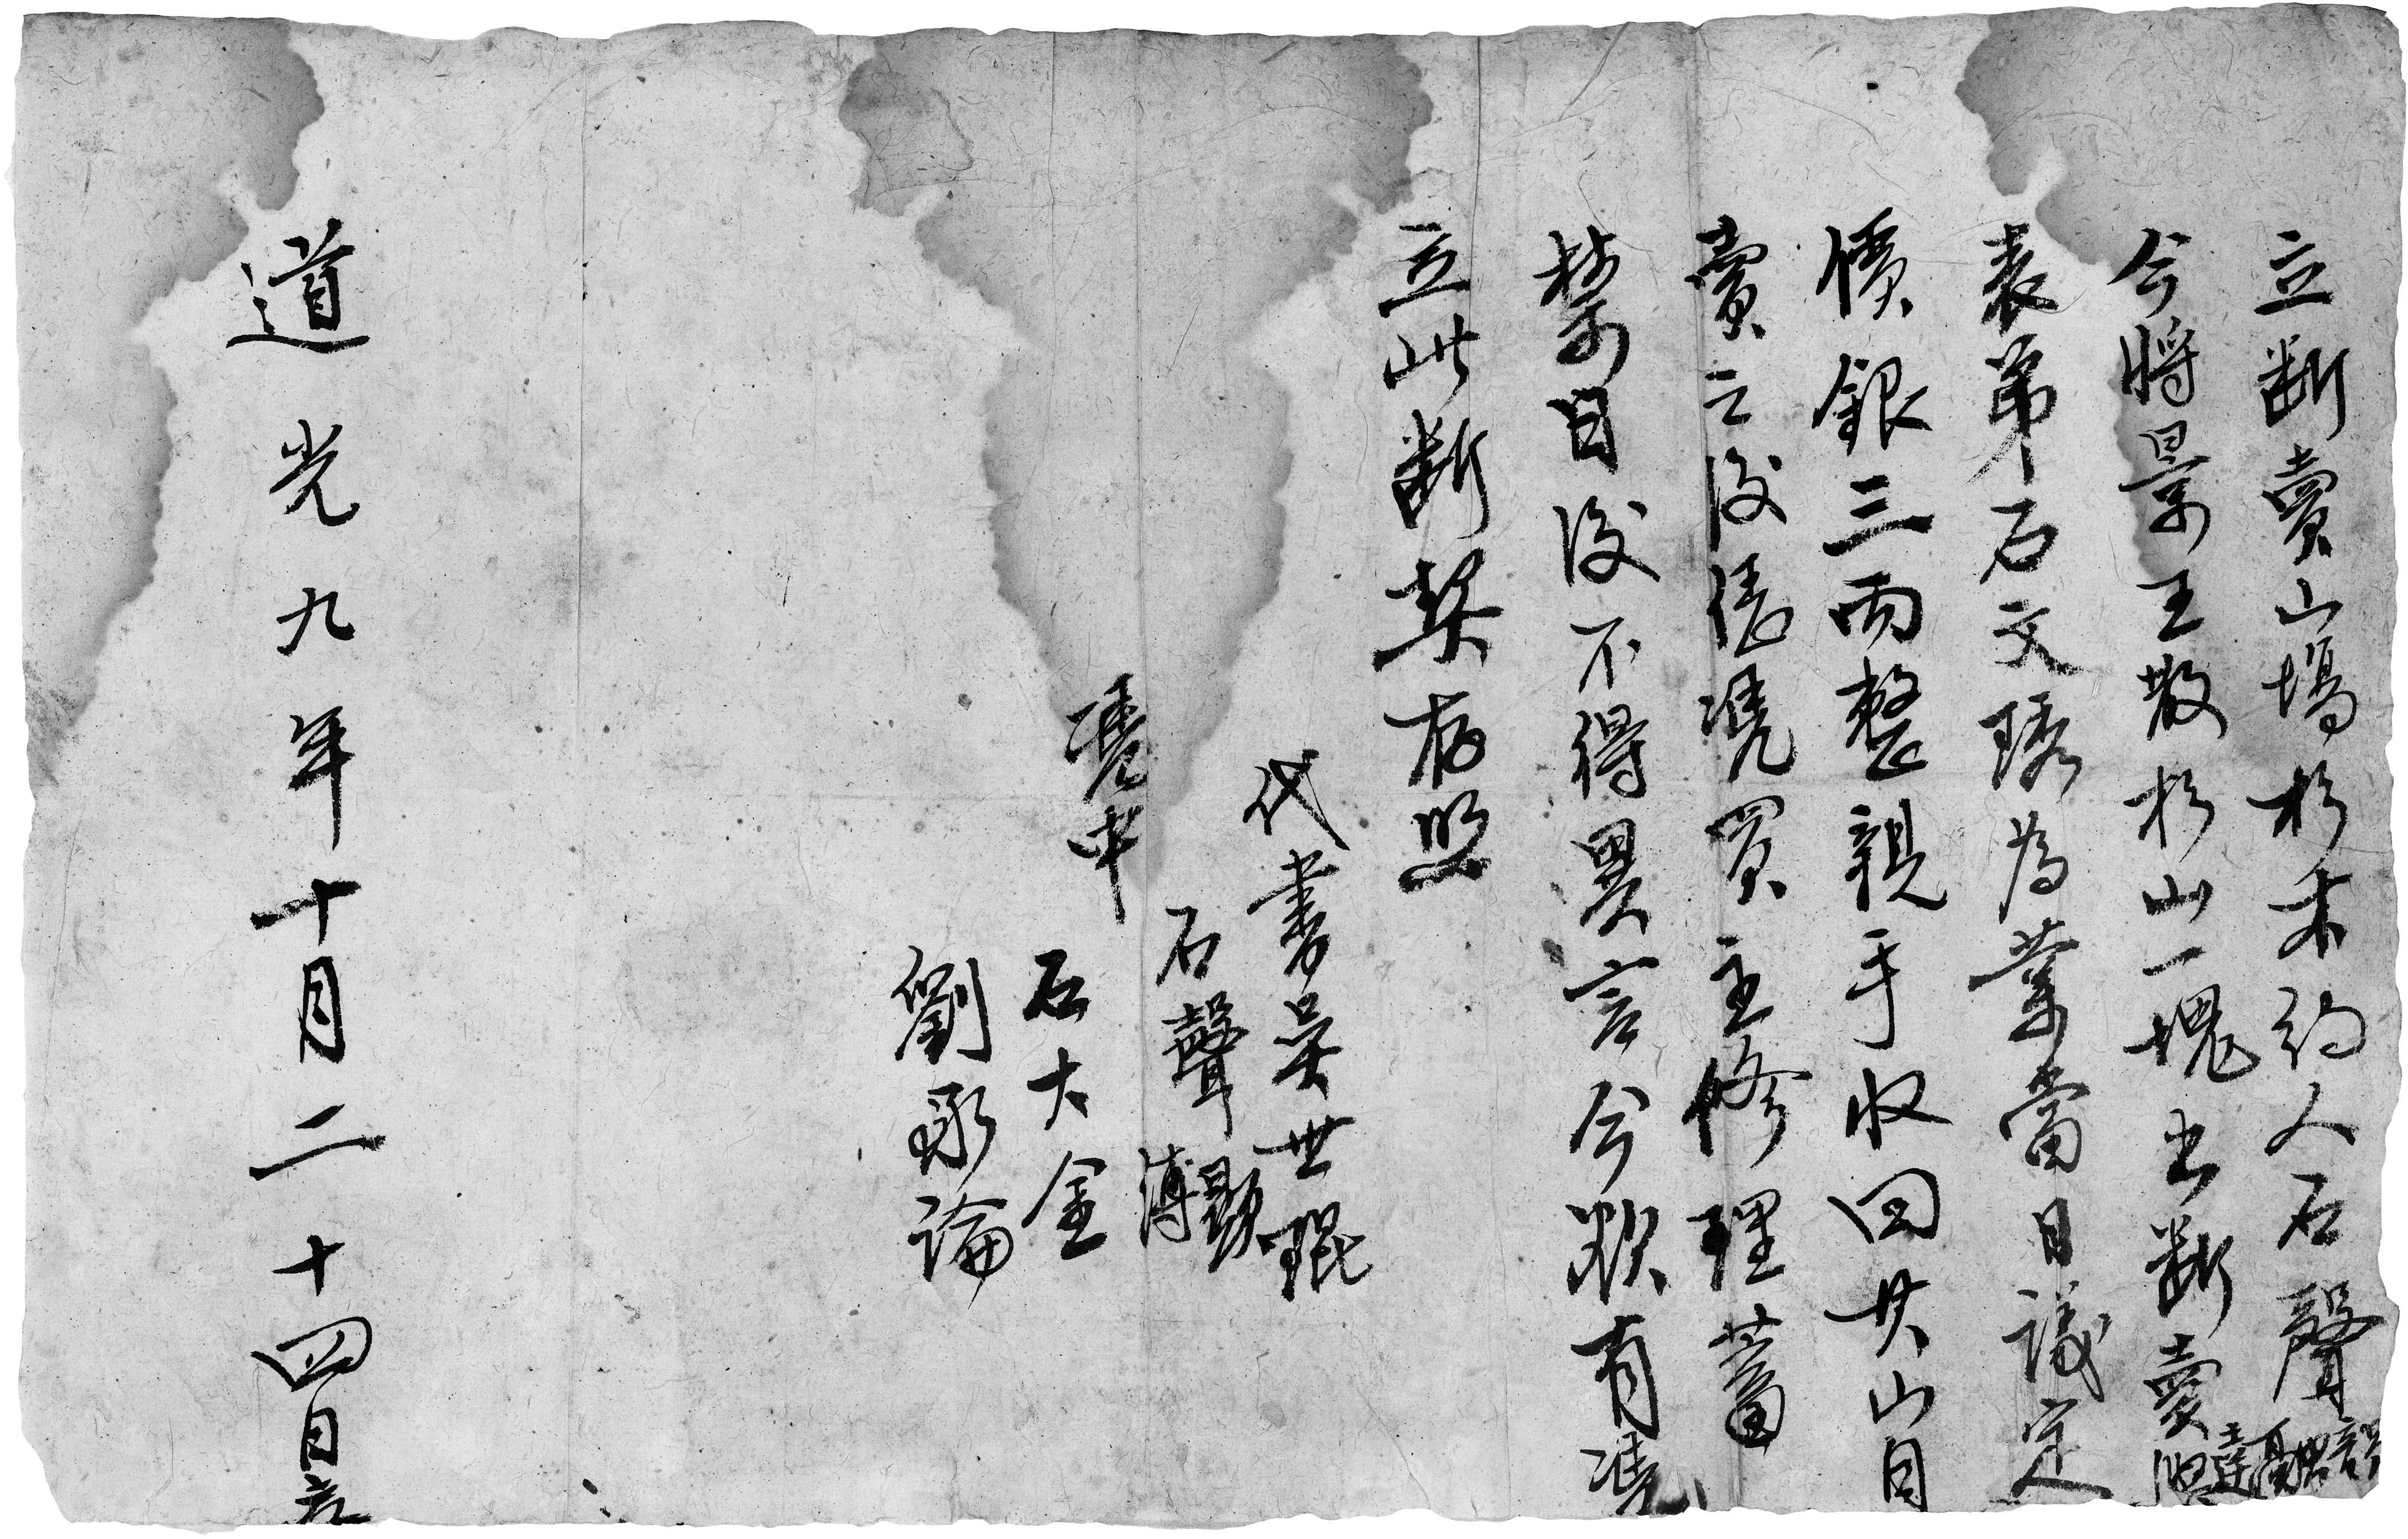 立断賣山塲杉木約人石聲韶融達
今將景王散杉山一塊出断賣與
表弟石文琇為業當日議定
價銀三両整親手收囘其山自
賣之後任凴買主修理蓄
禁日後不得異言今欲有凴
立此断契存照
代書吳世琨
石聲顯溥
凴中 石大金
劉承論
道光九年十月二十四日立